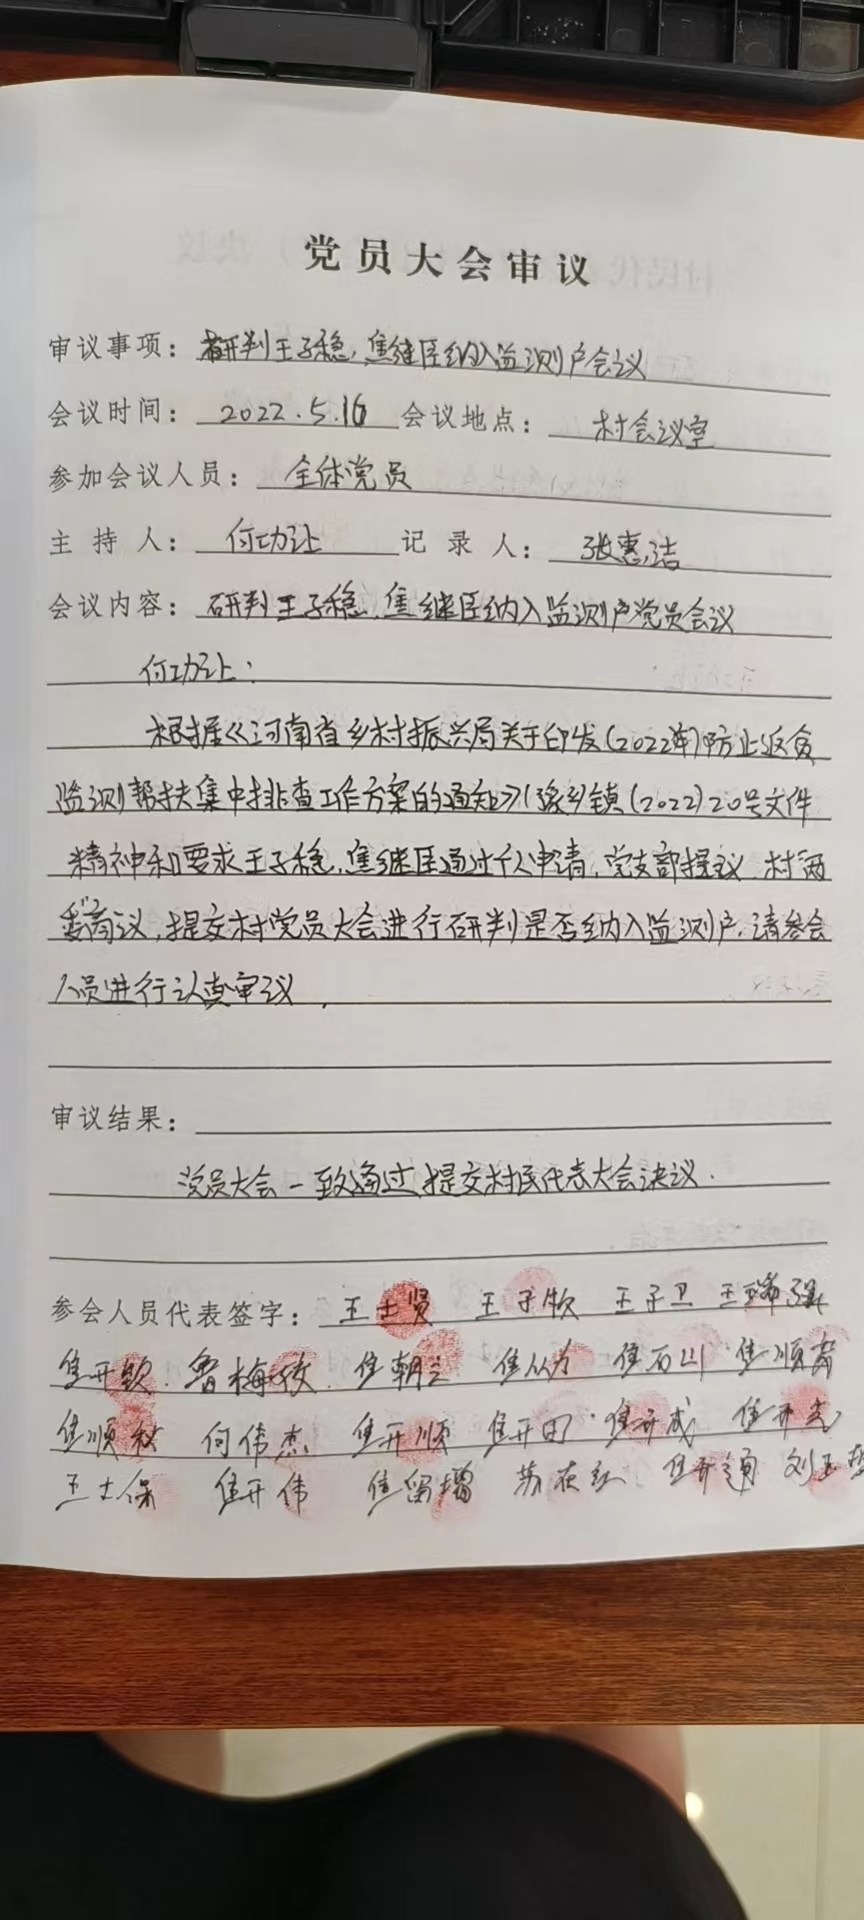 党员大会审议
审议事项：研判王子稳、焦继臣纳入监测户会议
会议时间：2022.5.16 会议地点：村会议室
参加会议人员：全体党员
主持人：何功让 记录人：张惠洁
会议内容：研判王子稳、焦继臣纳入监测户党员会议
何功让：
根据《河南省乡村振兴局关于印发(2022年)防止返贫
监测帮扶集中排查工作方案的通知》(豫乡镇(2022)20号文件
精神和要求王子稳、焦继臣通过个人申请，党支部提议、村"两
委"商议，提交村党员大会进行研判是否纳入监测户，请参会
人员进行认真审议.
审议结果：
党员大会一致通过，提交村民代表大会决议.
参会人员代表签字：王士贤 王子欣 王子卫 王瑞强
焦开钦 鲁梅孜 焦朝 焦从 焦石山 焦顺
焦顺 何伟杰 焦开顺 焦开田 焦开成 焦开志
王士保 焦开伟 焦留增 苏在红 焦开通 刘玉